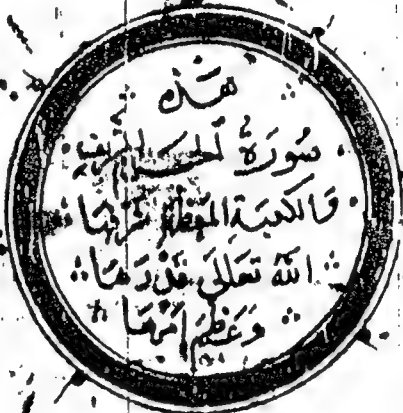 هذه
سورة الحرم الشريف
والكعبة المعظم شرفها
الله تعالى قدرها
وعظم امرها